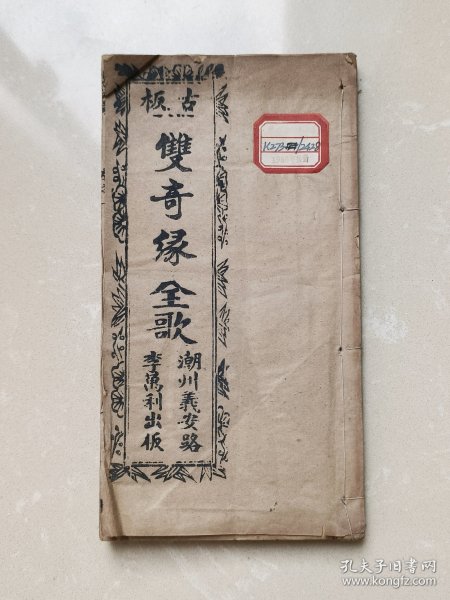 古板
雙奇緣全歌
潮州義安路
李萬利出板
孔夫子旧书网
www.kongfz.com